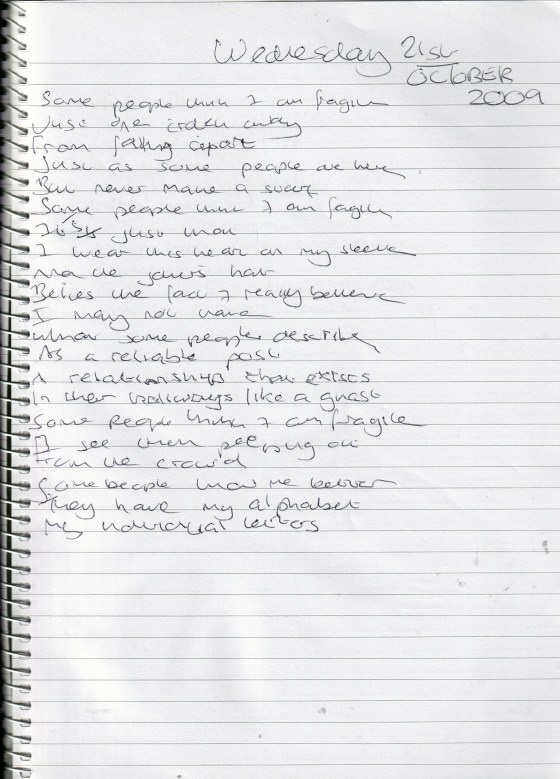 Wednesday 21st
OCTOBER
2009
Some people think I am fragile
Just one
From falling apart
Just as some people are here
But never make a
Some people think I am fragile
It's just that
I wear this heart on my sleeve
Belies the fact I really believe
I may not have
What some people describe
As a reliable past
A relationship that exists
In their like a ghost
Some people think I am fragile
I see them peeping out
From the crowd
Some people know me better
They have my alphabet
My letters